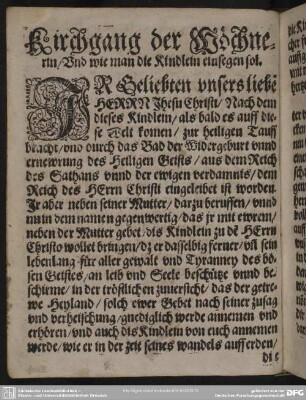 Kirchgang der Wöchne-
rin/ Vnd wie man die Kindlein einsegen sol.
IR Geliebten vnsers liebē
HERRN Jhesu Christi/ Nach dem
dieses Kindlein/ als bald es auff die-
se Welt komen/ zur heiligen Tauff
bracht/ vnd durch das Bad der Widergeburt vnnd
ernewrung des Heiligen Geists/ aus dem Reich
des Sathans vnnd der ewigen verdamnis/ dem
Reich des HErrn Christi eingeleibet ist worden.
Jr aber neben seiner Mutter/ darzu beruffen/ vnnd
nu in dem namen gegenwertig/ das jr mit ewrem/
neben der Mutter gebet/ dis Kindlein zu dē HErrn
Christo wollet bringen/ dz er dasselbig ferner/ vñ sein
lebenlang für aller gewalt vnd Tyranney des bö-
sen Geistes/ an leib vnd Seele beschütze vnnd be-
schirme/ in der tröstlichen zuuersicht/ das der getre-
we Heyland/ solch ewer Gebet nach seiner zusag
vnd verheischung/ gnediglich werde annemen vnd
erhören/ vnd auch dis Kindlein von euch annemen
werde/ wie er in der zeit seines wandels auff erden/